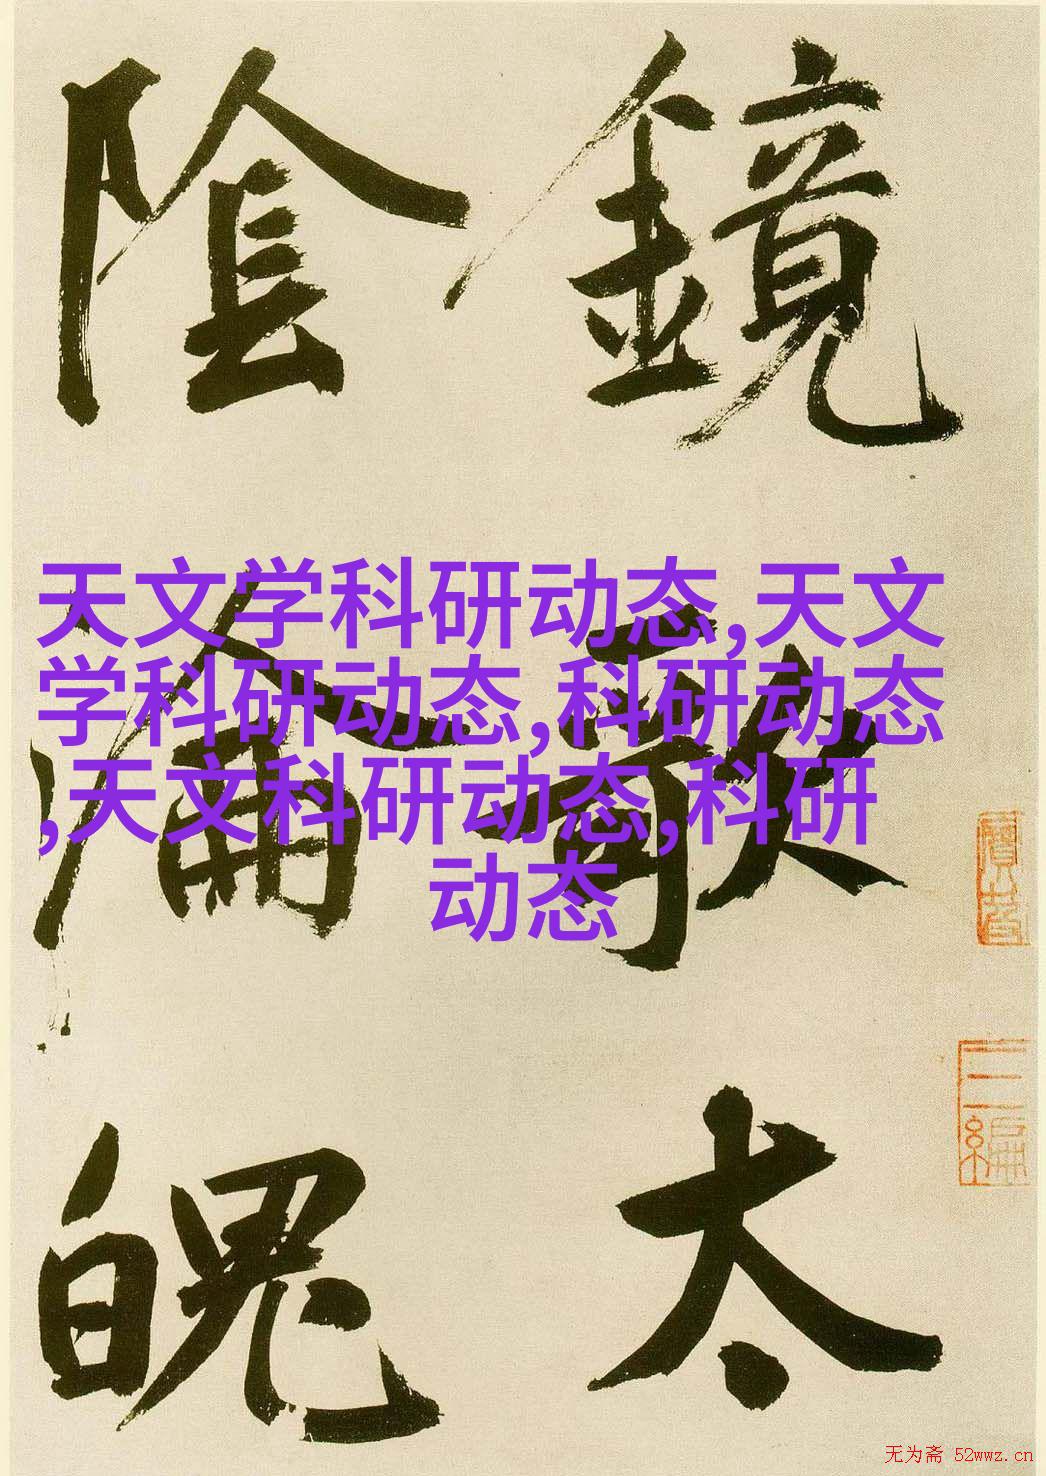 鏡歌太
陰淪魄
天文学科研动态,天文
学科研动态,科研动态
,天文科研动态,科研
动态
无为斋 52wwz.cn